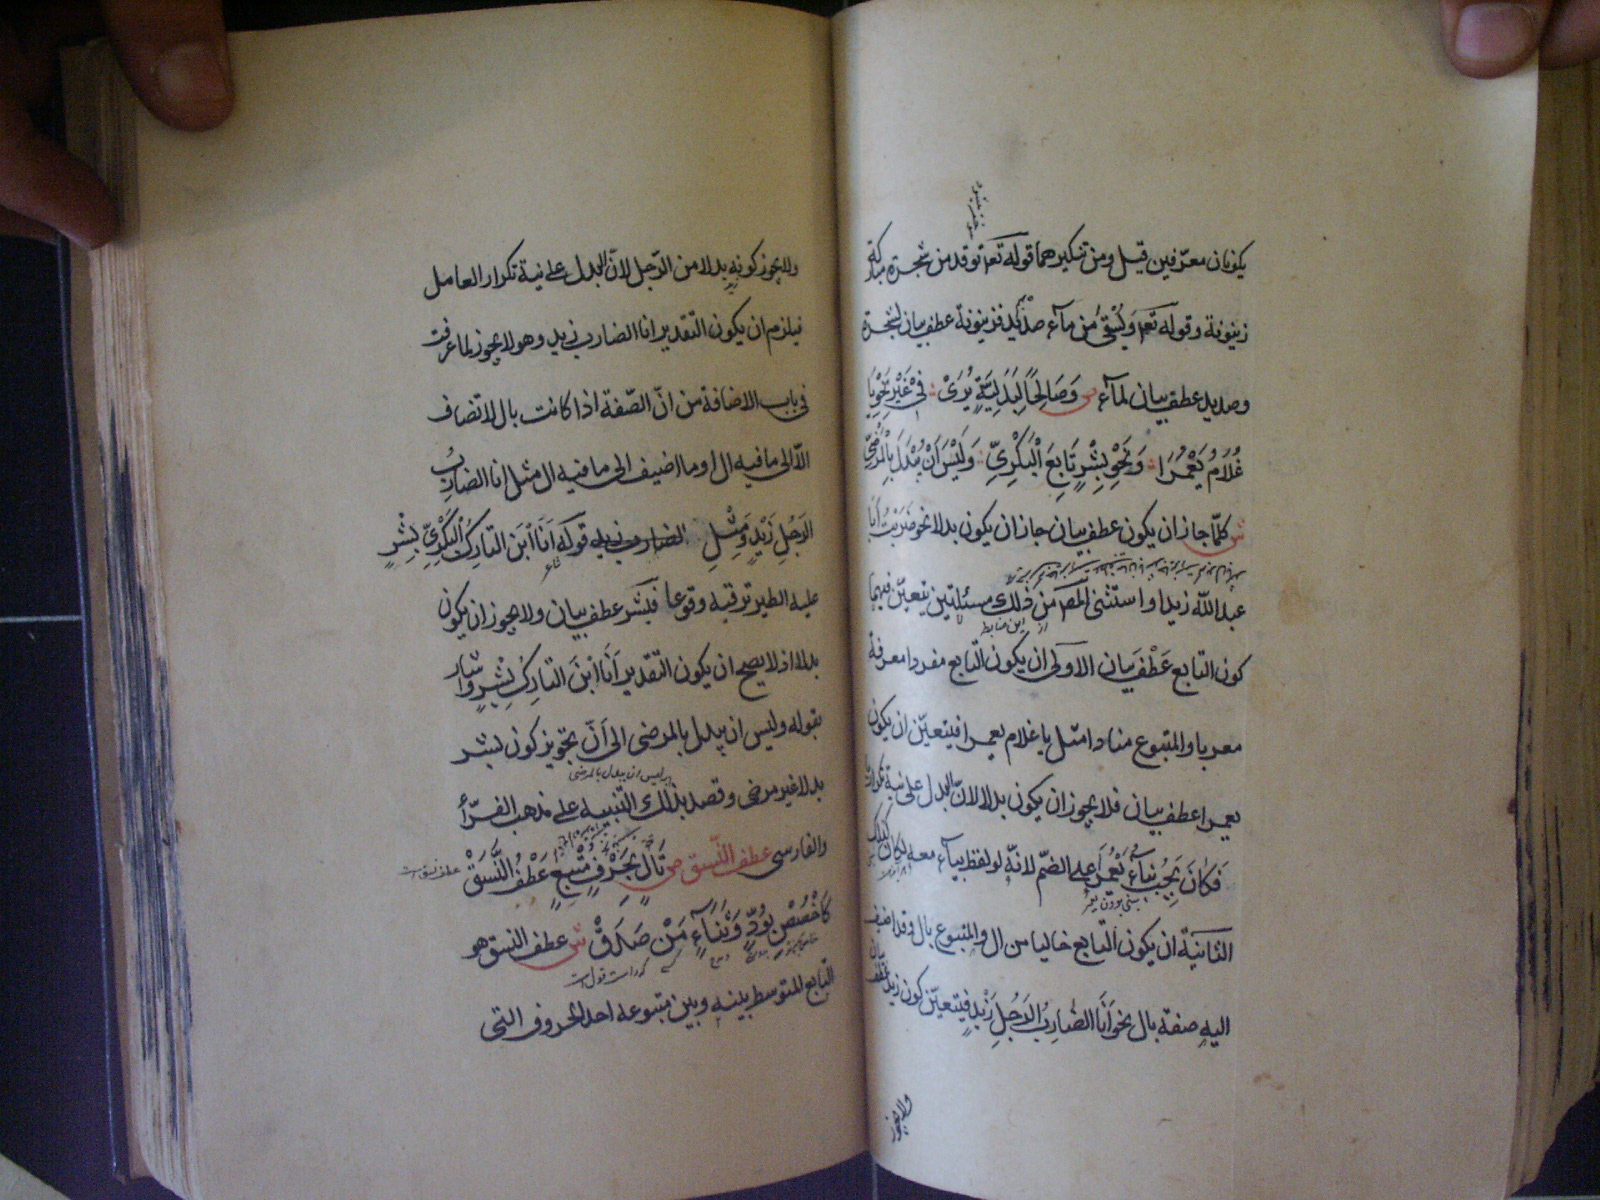 يكونان معرّفين قيل ومن تنكيرهما قوله تعم توقد من شجرة مباركة
زيتونة وقوله تعم ويُسْقىٰ من مآء صديد فزيتونة عطف بيان لشجرة
وصديد عطف بيان لمآء ص وَصَالِحًا لِبَدَلِيَّةٍ يُرَىٰ في غَيْرِ نَحْوِ يَا
غُلَامُ يَعْمُرَا وَنَحْوِ بِشْرٍ تَابِعَ الْبَكْرِيِّ وَلَيْسَ اَنْ يُبْدَلَ بِالْمَرْضِيِّ
ش كلّما جاز ان يكون عطف بيان جاز ان يكون بدلا نحو ضربت أبا
عبد الله زيدا واستثنى المصـ من ذلك مسئلتين يتعيّن فيهما
كون التابع عَطْفَ بيان الاولى ان يكون التابع مفردا معرفة
معربا والمتبوع منادا مثل يا غلام يعمرا فيتعيّن ان يكون
يعمرا عطف بيان فلا يجوز ان يكون بدلا لانّ البدل على نية تكرار
فَكانَ يَجِبُ بناءُ يَعْمُرَ على الضمّ لانّه لو لفظ بيآء معه لكان كذلك
الثانية ان يكون التابع خاليا من ال والمتبوع بال وقد اضيف
اليه صفة بال نحو اَنَا الضّارِبُ الرَجُلِ زَيْدٍ فيتعيّن كون زيد عطف بيان
ولا يجوز
ولا يجوز كونه بدلا من الرّجل لانّ البدل على نية تكرار العامل
فيلزم ان يكون التقدير انا الضارب زيد وهو لا يجوز لما عرفت
في باب الاضافة من انّ الصّفة اذا كانت بال لا تضاف
الّا الى ما فيه ال او ما اضيف الى ما فيه ال مثل انا الضاربُ
الرَجُلِ زَيْدٍ وَمِثْلِ الضارب زيد قوله اَنَا ابْنَ التارِكُ الْبَكْرِيِّ بِشْرٍ
عليه الطير ترقبه وقوعا فبشر عطف بيان ولا يجوز ان يكون
بدلا اذ لا يصح ان يكون التقدير اَنَا ابْنَ التارِكُ بِشْرٍ واشار
بقوله وليس ان يبدل بالمرضى الى اَنّ تجويز كون بشر
بدلا غير مرضى وقصد بذلك التّنبيه على مذهب الفرّاء
والفارسى عطف النّسق ص تَالٍ بِحَرْفٍ مُتْبِعٍ عَطْفُ النَّسَقْ
كَاخْصُصْ بِوُدٍّ وَثَنَاءٍ مَنْ صَدَقْ ش عطف النسق هو
التابع المتوسط بينه وبين متبوعه احد الحروف التى